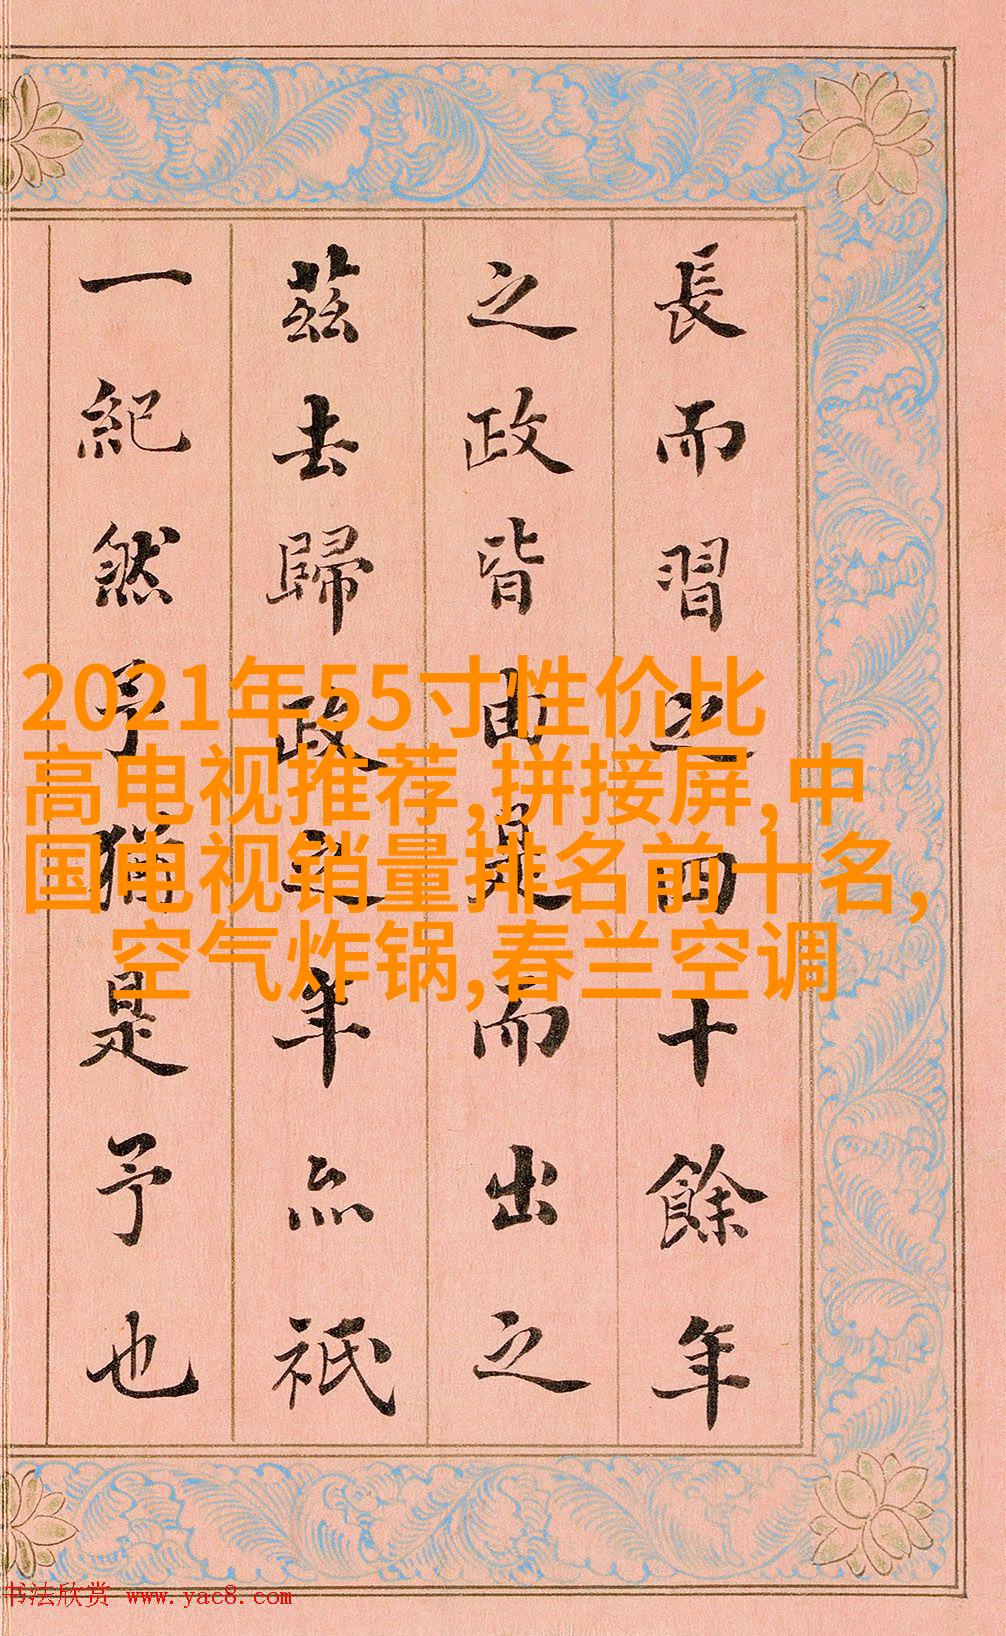 長而習之四十餘年
之政皆由是而出之
茲去歸政之年亦祇
一紀然予猶是予也
2021年55寸性价比
高电视推荐,拼接屏,中
国电视销量排名前十名,
空气炸锅,春兰空调
书法欣赏 www.yac8.com